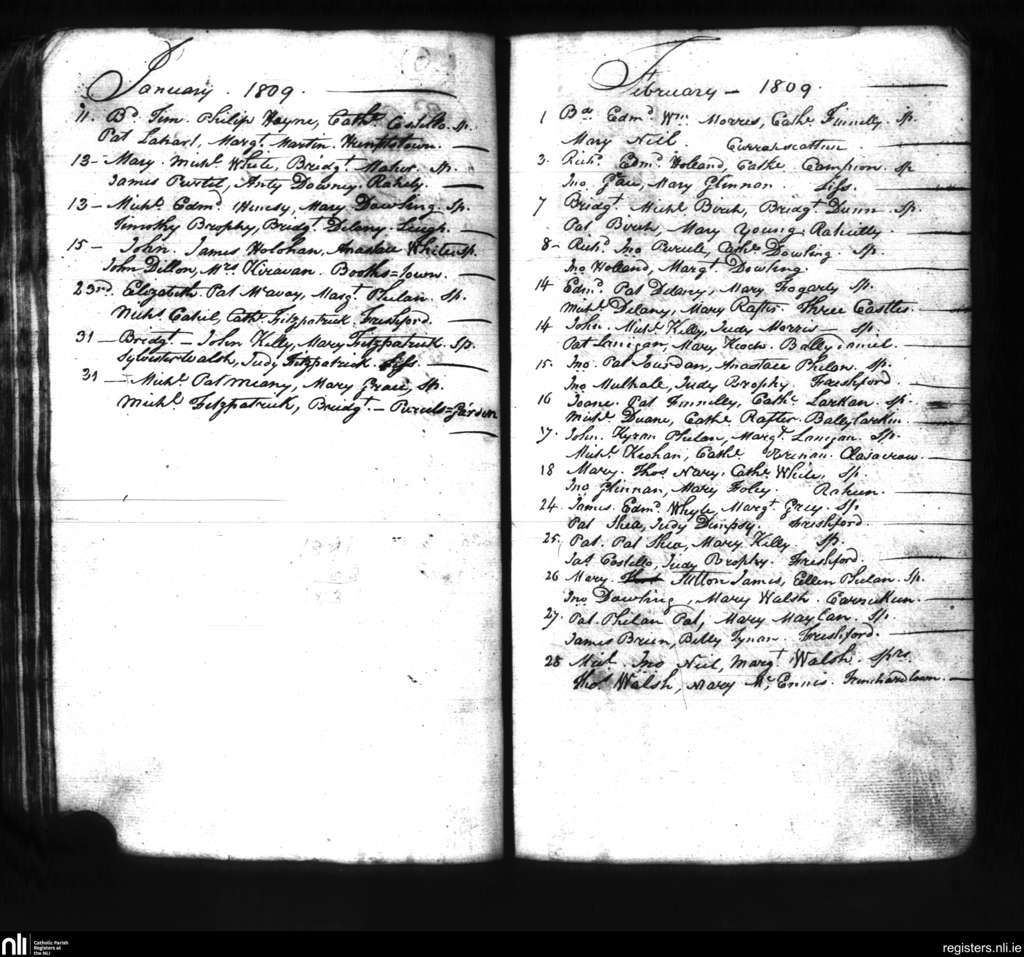 January. 1809.
11. Bd. Tim. Philip Hayne, Cathe. Costello. Sp.
Pat Lahart, Margt. Martin. Huntstown.
13 - Mary. Michl. Whele, Bridgt. Maher. Sp.
James Purtel, Anty Downey. Rahely.
13 - Michl. Edmd. Henesy, Mary Dowling. Sp.
Timothy Brophy, Bridgt. Delany. Leugh.
15 - John. James Holohan, Anastace White. Sp.
John Dillon, Mrs. Kiravan. Booths=town.
23rd. Elizabeth. Pat McAvay, Margt. Phelan. Sp.
Michl. Cahil, Cathe. Fitzpatrick. Freshford.
31 - Bridgt. - John Kelly, Mary Fitzpatrick. Sp.
Sylvester Walsh, Judy Fitzpatrick.
31 - Michl. Pat Meany, Mary Grace, Sp.
Michl. Fitzpatrick, Bridgt. - Purcels=Garden
February - 1809.
1 Bd. Edmd. Wm. Morris, Cathe. Finnelly. Sp.
Mary Neil. Currahscattine
3. Richd. Edmd. Holland, Cathe. Campion. Sp
Jno. Gace, Mary Glennon.
7 Bridgt. Michl. Birch, Bridgt. Dunn. Sp.
Pat. Birch, Mary Young. Raheilly
8 - Richd. Jno. Purcele, Cathe. Dowling. Sp.
Jno Holland, Margt. Dowling.
14 Edmd. Pat Delany, Mary Fogarty Sp.
Michl. Delany, Mary Rafter. Three Castles.
14 John. Michl. Kelly, Judy Morris - Sp.
Pat Lanigan, Mary Keoch. Ballydaniel.
15. Jno. Pat Jourdan, Anastace Phelan. Sp.
Jno Mulhale, Judy Brophy. Freshford
16 Joane. Pat Finnelley, Cathe. Larkan. Sp.
Michl. Duane, Cathe. Rafter. Ballylarkin.
17. John. Kyran Phelan, Margt. Lanigan. Sp.
Michl. Keohan, Cathe. Brenan. Clasacrow.
18 Mary. Thos Nary. Cathe. White, Sp.
Jno Glennan, Mary Foley. Raheen.
24. James. Edmd. Whyte, Margt. Grey. Sp.
Pat Shea, Judy Dempsy. Freshford.
25. Pat. Pat Shea, Mary Kelly. Sp.
Jas. Costello, Judy Brophy. Freshford.
26 Mary. Sutton James, Ellen Phelan. Sp.
Jno Dowling, Mary Walsh.
27. Pat. Phelan Pat, Mary Maylan. Sp.
James Breen, Betty Tynan. Freshford.
28 Michl. Jno Neil, Margt. Walsh. Sprs.
Thos. Walsh, Mary Mc. Ennis.
nli Catholic Parish
Registers at
the NLI
registers.nli.ie